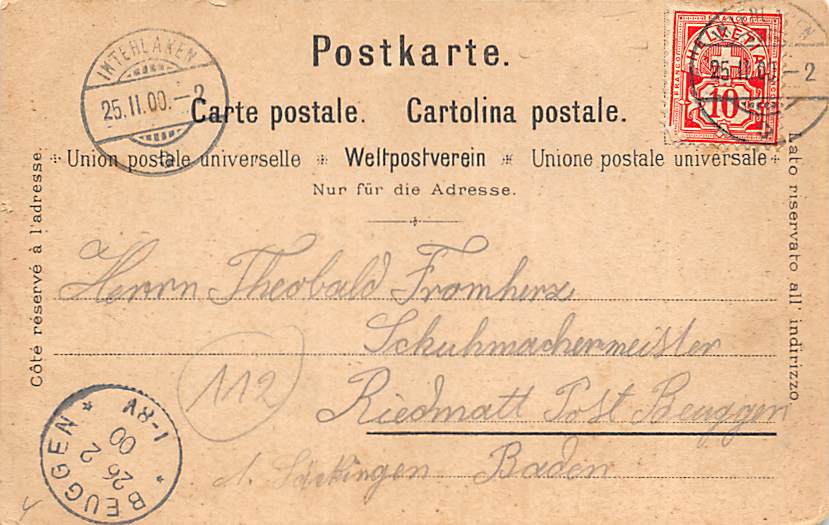 Postkarte.
Carte postale. Cartolina postale.
Union postale universelle Weltpostverein Unione postale universale
Nur für die Adresse.
Côté reservé à l'adresse.
Lato riservato all' indirizzo
INTERLAKEN
25.II.00.–2
HELVETIA
FRANCO
10
25.II.00.–2
Herrn Theobald Fromherz
Schuhmachermeister
112
Riedmatt Post Beuggen
Säckingen Baden
BEUGGEN
26
2
00
1-8V